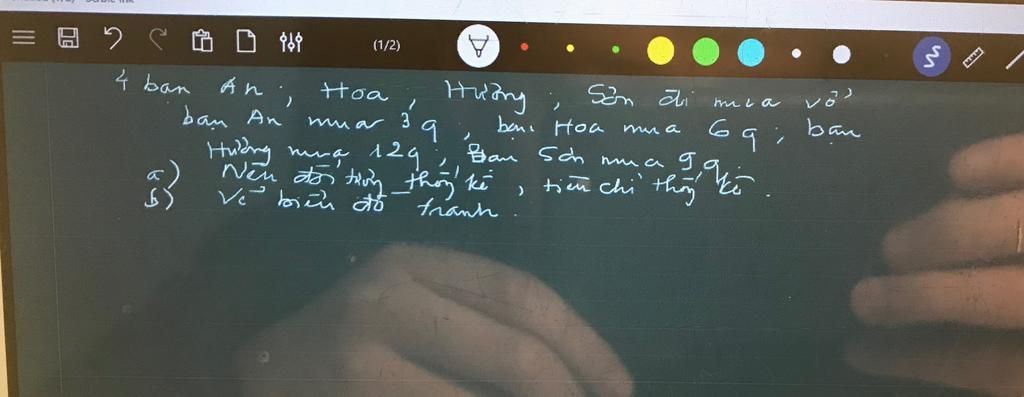 (1/2)
4 bạn An, Hoa, Hường, Sơn đi mua vở
bạn An mua 3q, bạn Hoa mua 6q, bạn
Hường mua 12q, Bạn Sơn mua 9q.
a) Nêu đối tượng thống kê, tiêu chí thống kê.
b) Vẽ biểu đồ tranh.